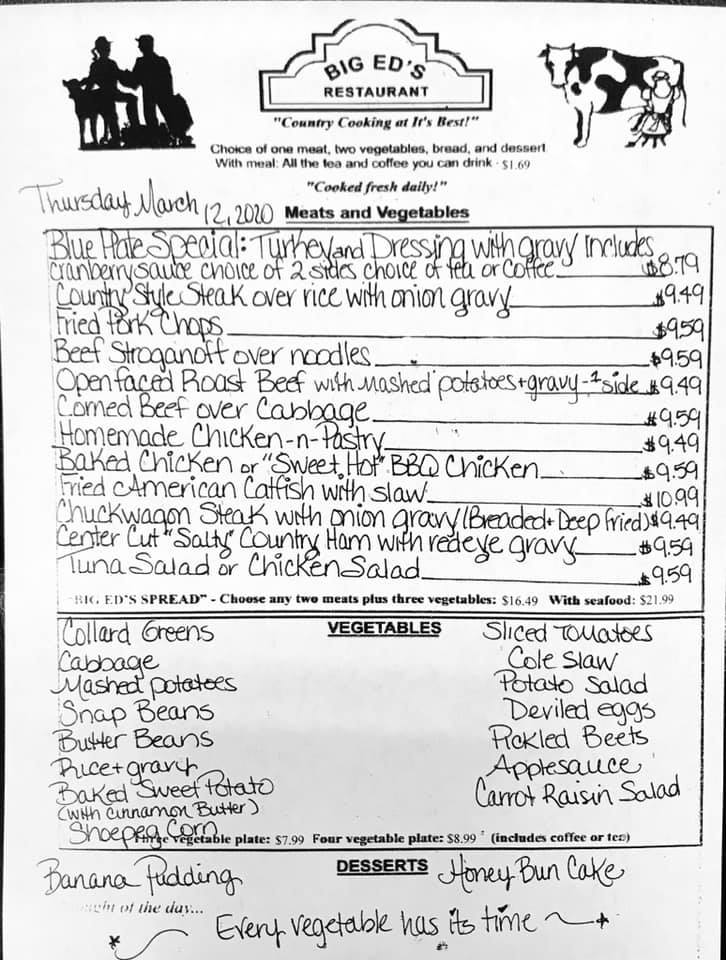 BIG ED'S
RESTAURANT
"Country Cooking at It's Best!"
Choice of one meat, two vegetables, bread, and dessert
With meal: All the tea and coffee you can drink · $1.69
"Cooked fresh daily!"
Thursday March 12, 2020
Meats and Vegetables
Blue Plate Special: Turkey and Dressing with gravy includes
cranberry sauce choice of 2 sides choice of tea or coffee $8.79
Country Style Steak over rice with onion gravy $9.49
Fried Pork Chops $9.59
Beef Stroganoff over noodles $9.59
Openfaced Roast Beef with mashed potatoes + gravy - 1 side $9.49
Corned Beef over Cabbage $9.59
Homemade Chicken-n-Pastry $9.49
Baked Chicken or "Sweet Hot" BBQ Chicken $9.59
Fried American Catfish with slaw $10.99
Chuckwagon Steak with onion gravy (Breaded + Deep fried) $9.49
Center Cut "Salty" Country Ham with redeye gravy $9.59
Tuna Salad or Chicken Salad $9.59
"BIG ED'S SPREAD" - Choose any two meats plus three vegetables: $16.49 With seafood: $21.99
VEGETABLES
Collard Greens
Cabbage
Mashed potatoes
Snap Beans
Butter Beans
Rice + gravy
Baked Sweet Potato
(with cinnamon Butter)
Shoepeg Corn
Sliced Tomatoes
Cole Slaw
Potato Salad
Deviled eggs
Pickled Beets
Applesauce
Carrot Raisin Salad
vegetable plate: $7.99 Four vegetable plate: $8.99 (includes coffee or tea)
DESSERTS
Banana Pudding
Honey Bun Cake
of the day...
Every vegetable has its time